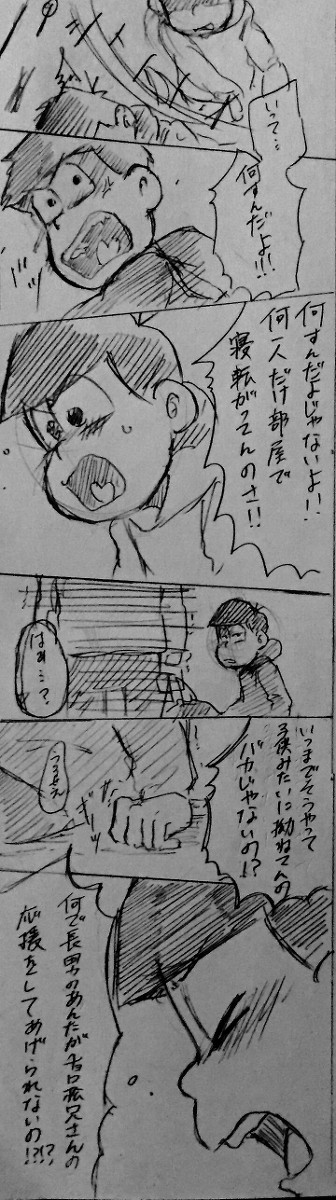 いって…
何すんだよ!!!
何すんだよじゃないよ!!
何一人だけ部屋で
寝転がってんのさ!!
はぁ…?
いつまでそうやって
子供みたいに拗ねてんの
バカじゃないの!?
うるせえ
何で長男のあんたがチョロ松兄さんの
応援をしてあげられないの!?!?